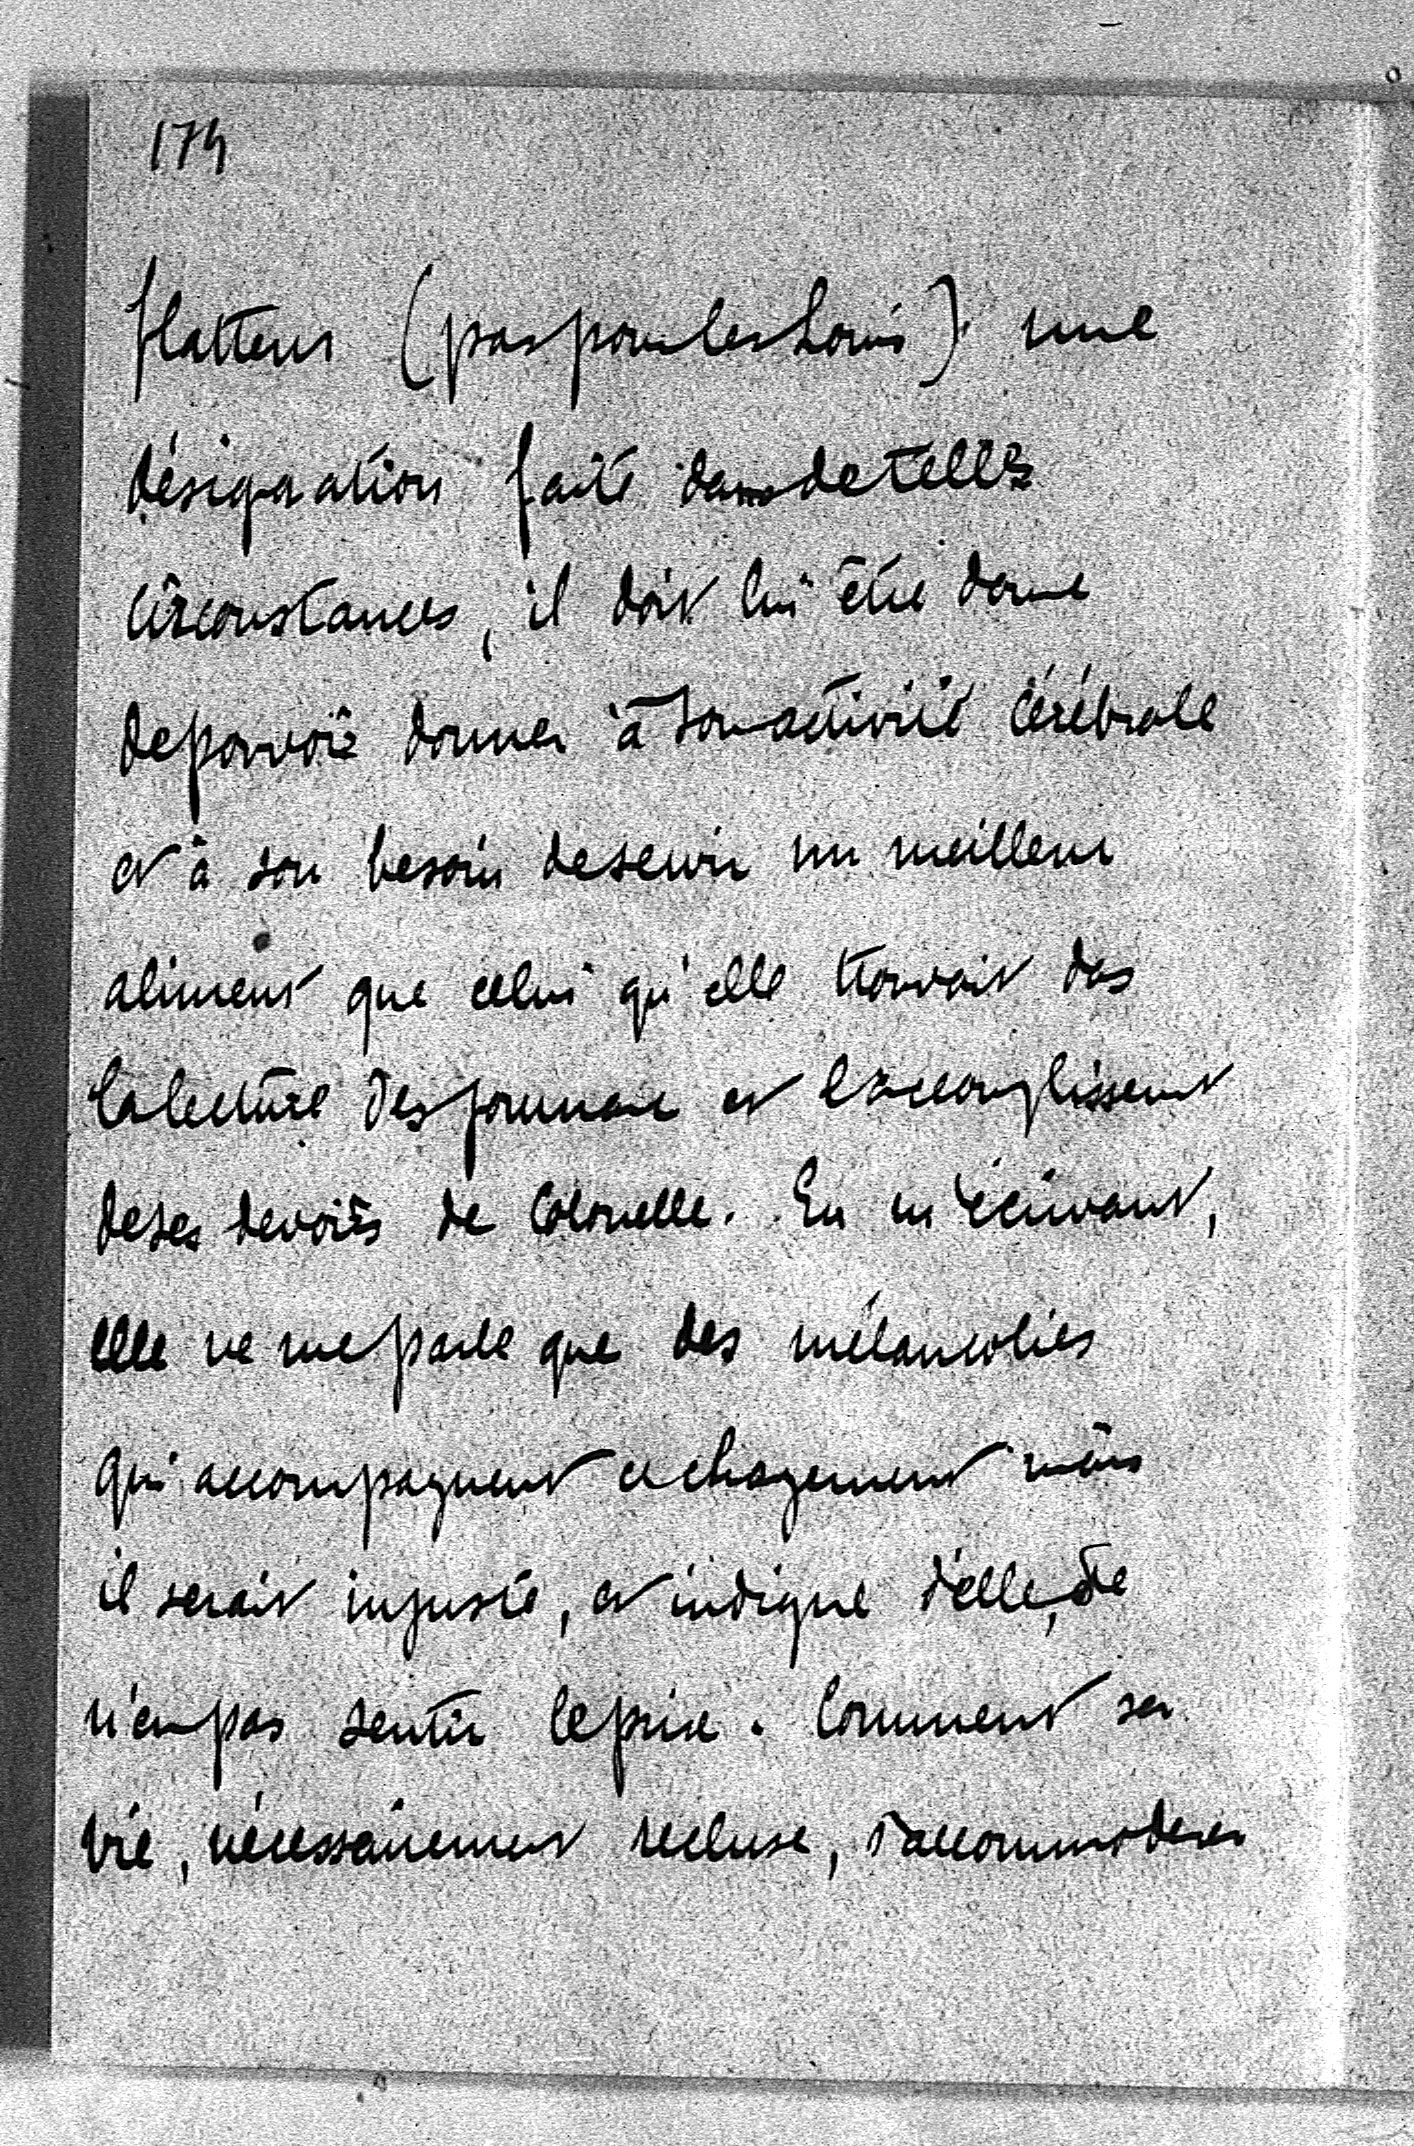 174
flatteur (pas pour les Louis) une
désignation faite dans de telles
circonstances, il doit lui être doux
de pouvoir donner à son activité cérébrale
et à son besoin de servir un meilleur
aliment que celui qu'elle trouvait ds
la lecture des journaux et l'accomplissement
de ses devoirs de Colonelle. En m'écrivant,
elle ne me parle que des mélancolies
qui accompagnent ce changement mais
il serait injuste, et indigne d'elle, de
n'en pas sentir le prix. Comment sa
vie, nécessairement recluse, s'accommodera